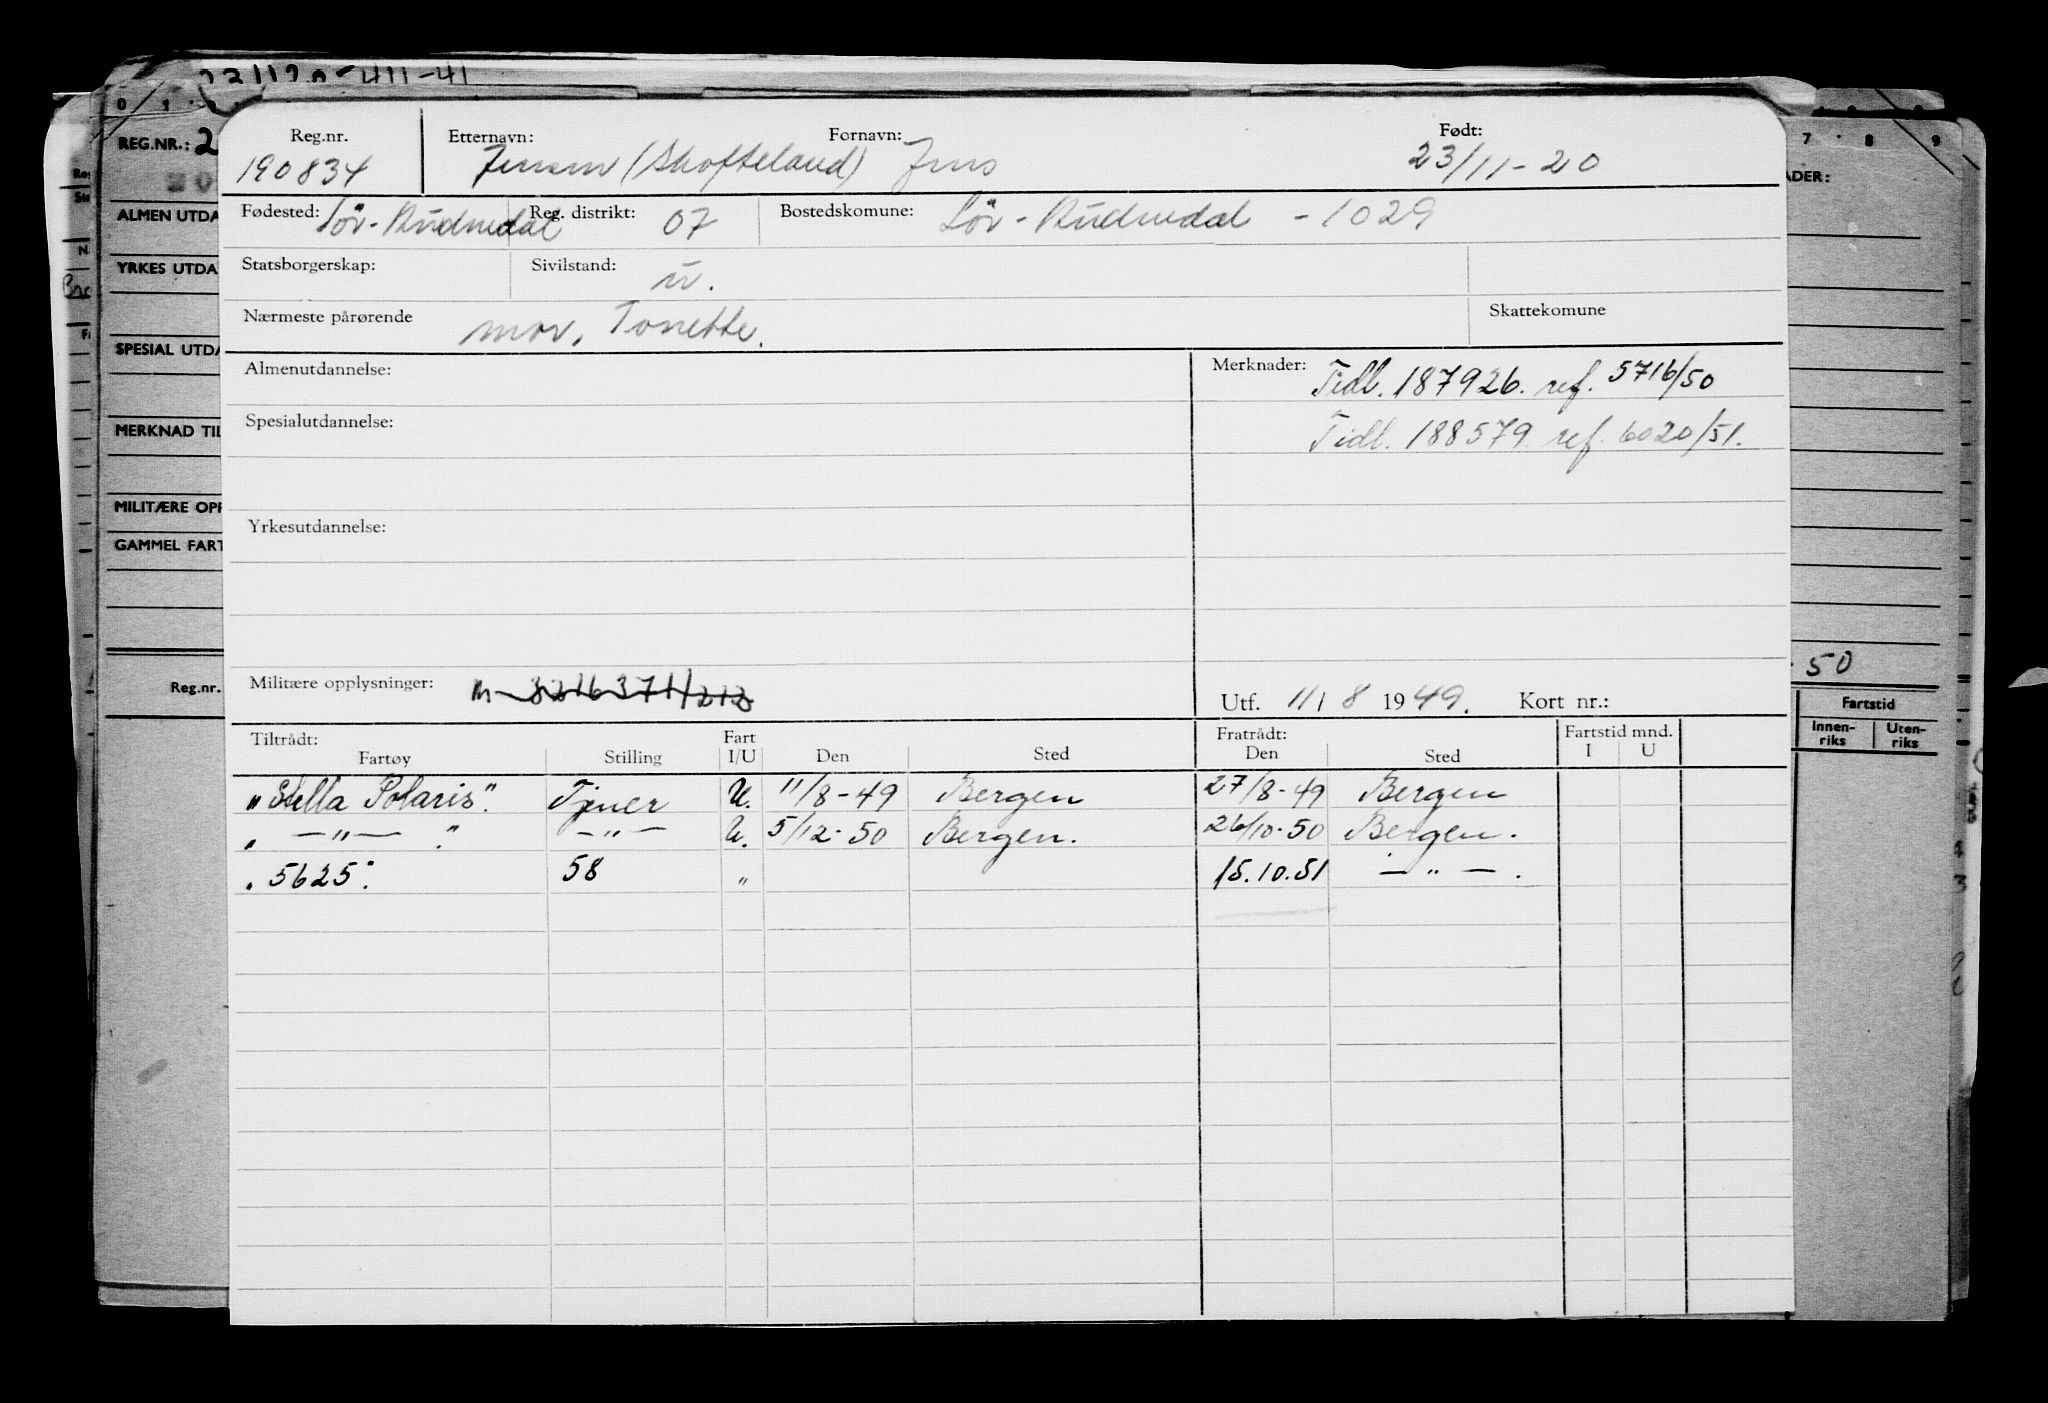 23/120-411-41
0 1
REG.NR.: 2
ALMEN UTDA
YRKES UTDA
SPECIAL UTDA
MERKNAD TIL
MILITÆRE OPP
GAMMEL FART
Reg.nr.
7 8 9
ADER:
50
Fartstid
Innen-riks Uten-riks
Reg.nr. Etternavn: Fornavn: Født:
190834 Jensen (Skofteland) Jens 23/11-20
Fødested: Sör-Audnedal Reg. distrikt: 07 Bostedskomune: Sör-Audnedal - 1029
Statsborgerskap: Sivilstand: u.
Nærmeste pårørende mor, Tonette. Skattekomune
Almenutdannelse: Merknader: Tidl. 187926. ref. 5716/50
Spesialutdannelse: Tidl. 188579. ref. 6020/51.
Yrkesutdannelse:
Militære opplysninger: m 3216371/212 Utf. 11/8 1949. Kort nr.:
Tiltrådt: Fart Fratrådt: Fartstid mnd.
Fartøy Stilling I/U Den Sted Den Sted I U
"Stella Polaris". Tjener U. 11/8-49 Bergen 27/8-49 Bergen
" —"— ". —"— U. 5/12-50 Bergen. 26/10-50 Bergen.
" 5625". 58 " 15.10.51 —"—.